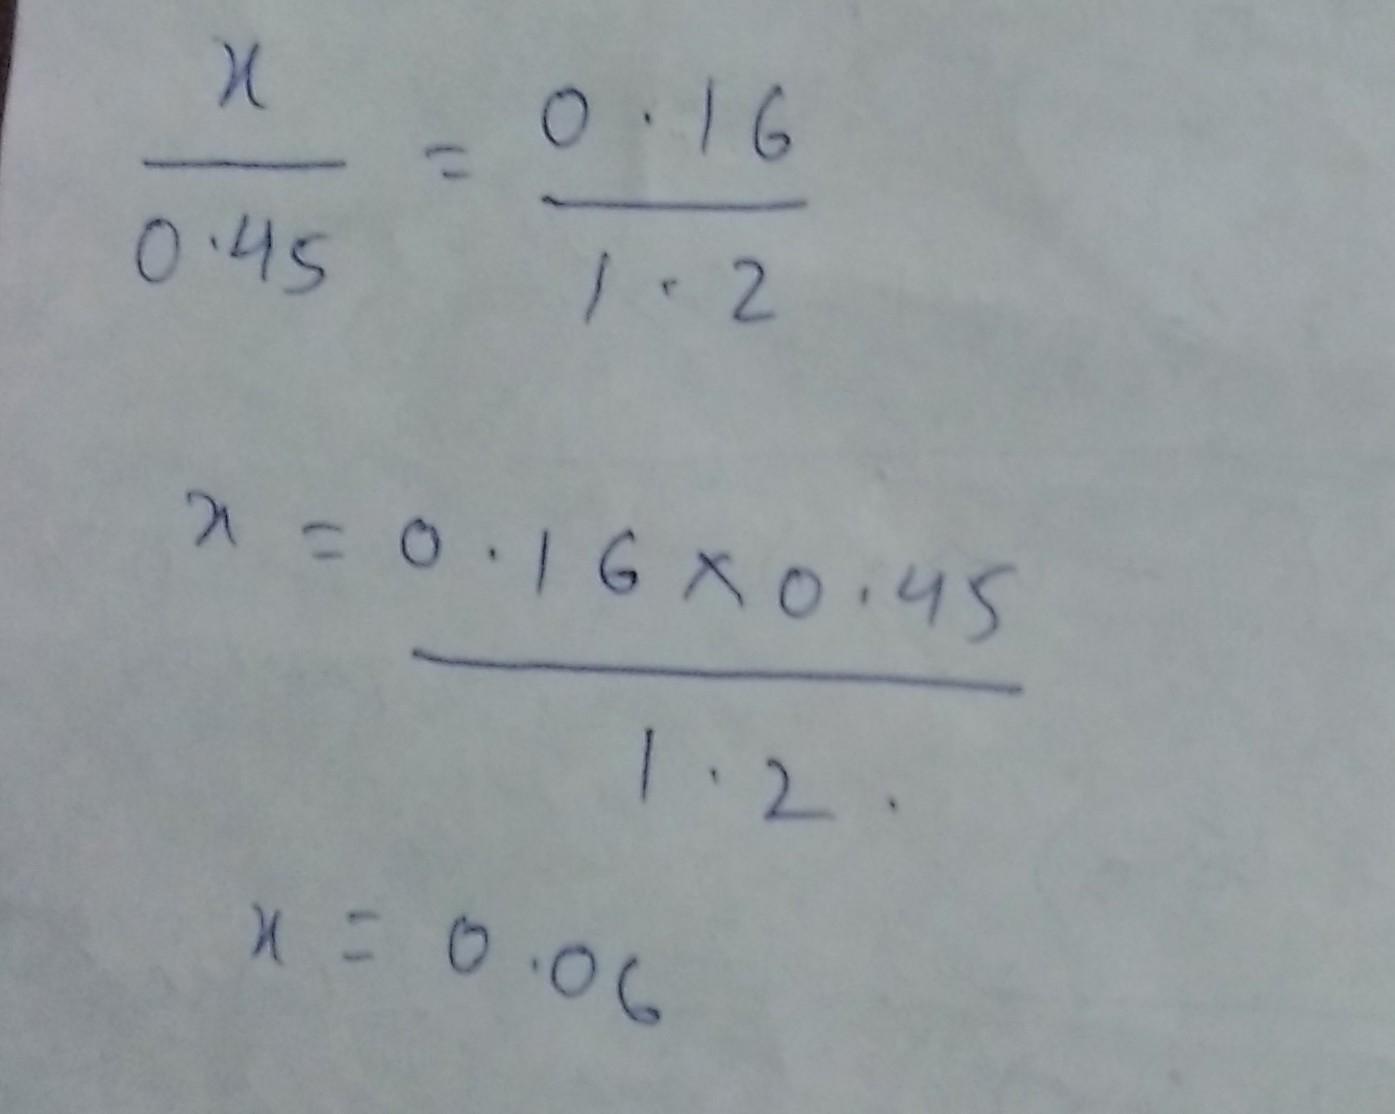 x/0.45 = 0.16/1.2
x = 0.16 × 0.45/1.2.
x = 0.06